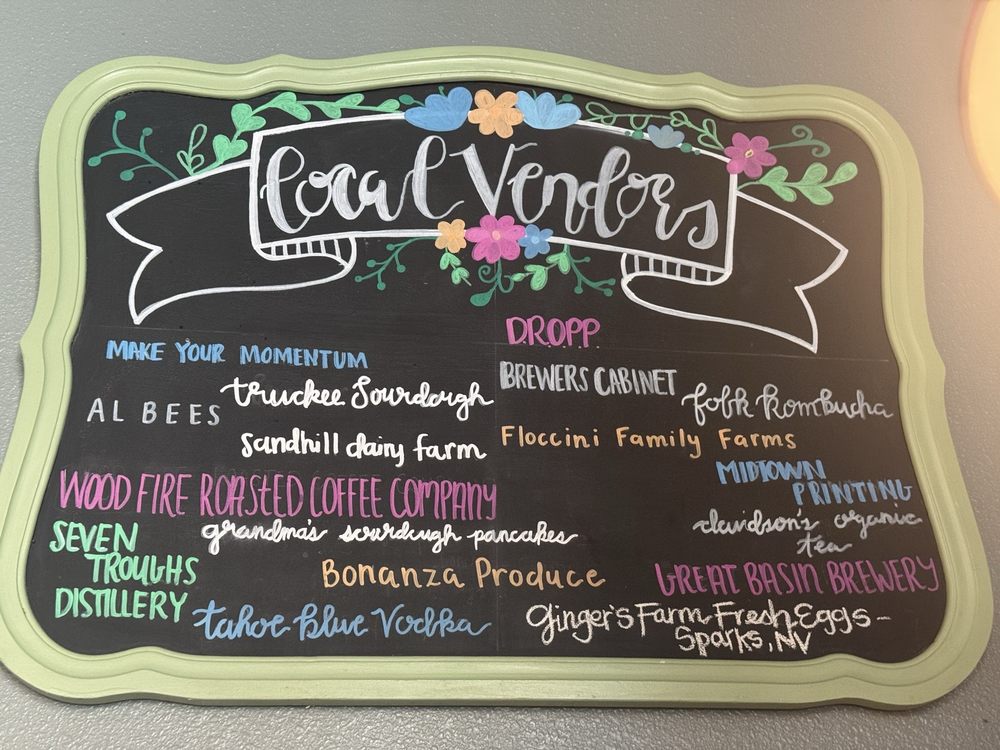 Local Vendors
D.R.O.P.P.
MAKE YOUR MOMENTUM
BREWERS CABINET
truckee Sourdough
folk Kombucha
AL BEES
Floccini Family Farms
sandhill dairy farm
MIDTOWN
PRINTING
WOOD FIRE ROASTED COFFEE COMPANY
davidson's organic
tea
SEVEN
TROUGHS
DISTILLERY
grandma's sourdough pancakes
Bonanza Produce
GREAT BASIN BREWERY
tahoe blue Vodka
Ginger's Farm Fresh Eggs -
Sparks, NV